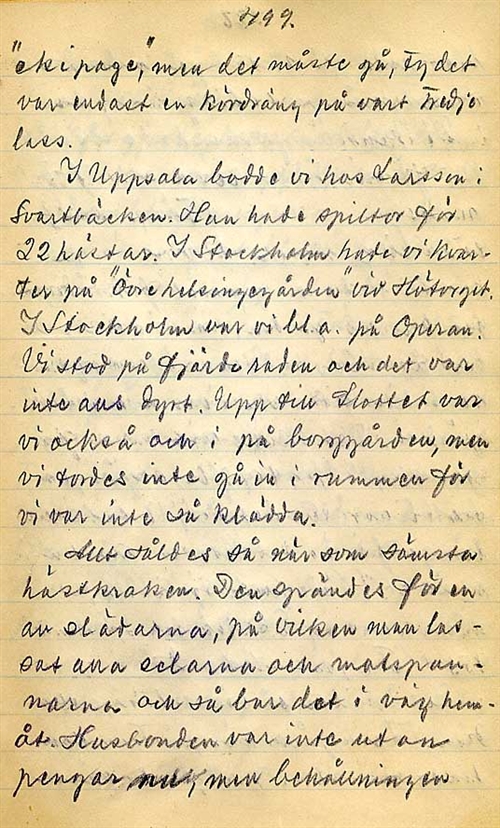 499.
"ekipage," men det måste gå, ty det
var endast en kördräng på vart tredje
lass.
I Uppsala bodde vi hos Larsson i
Svartbäcken. Han hade spiltor för
22 hästar. I Stockholm hade vi kvar-
ter på "Övre helsingegården" vid Hötorget.
I Stockholm var vi bl.a. på Operan.
Vi stod på fjärde raden och det var
inte alls dyrt. Upp till Slottet var
vi också och i på borggården, men
vi tordes inte gå in i rummen för
vi var inte så klädda.
Allt såldes så när som sämsta
hästkraken. Den spändes för en
av slädarna, på vilken man las-
sat alla selarna och matspan-
narna och så bar det i väg hem-
åt. Husbonden var inte utan
pengar, men behållningen